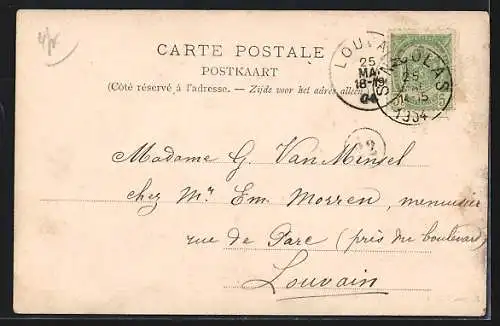 4/x
CARTE POSTALE
POSTKAART
(Côté réservé à l'adresse. — Zijde voor het adres alleen.)
LOUVA
25
MA
18-19
04
ST NICOLAS
25
14-15
1904
22
Madame G. Van Minsel
chez Mr. Em. Morren, menuisier
rue de Gare (près du boulevard)
Louvain